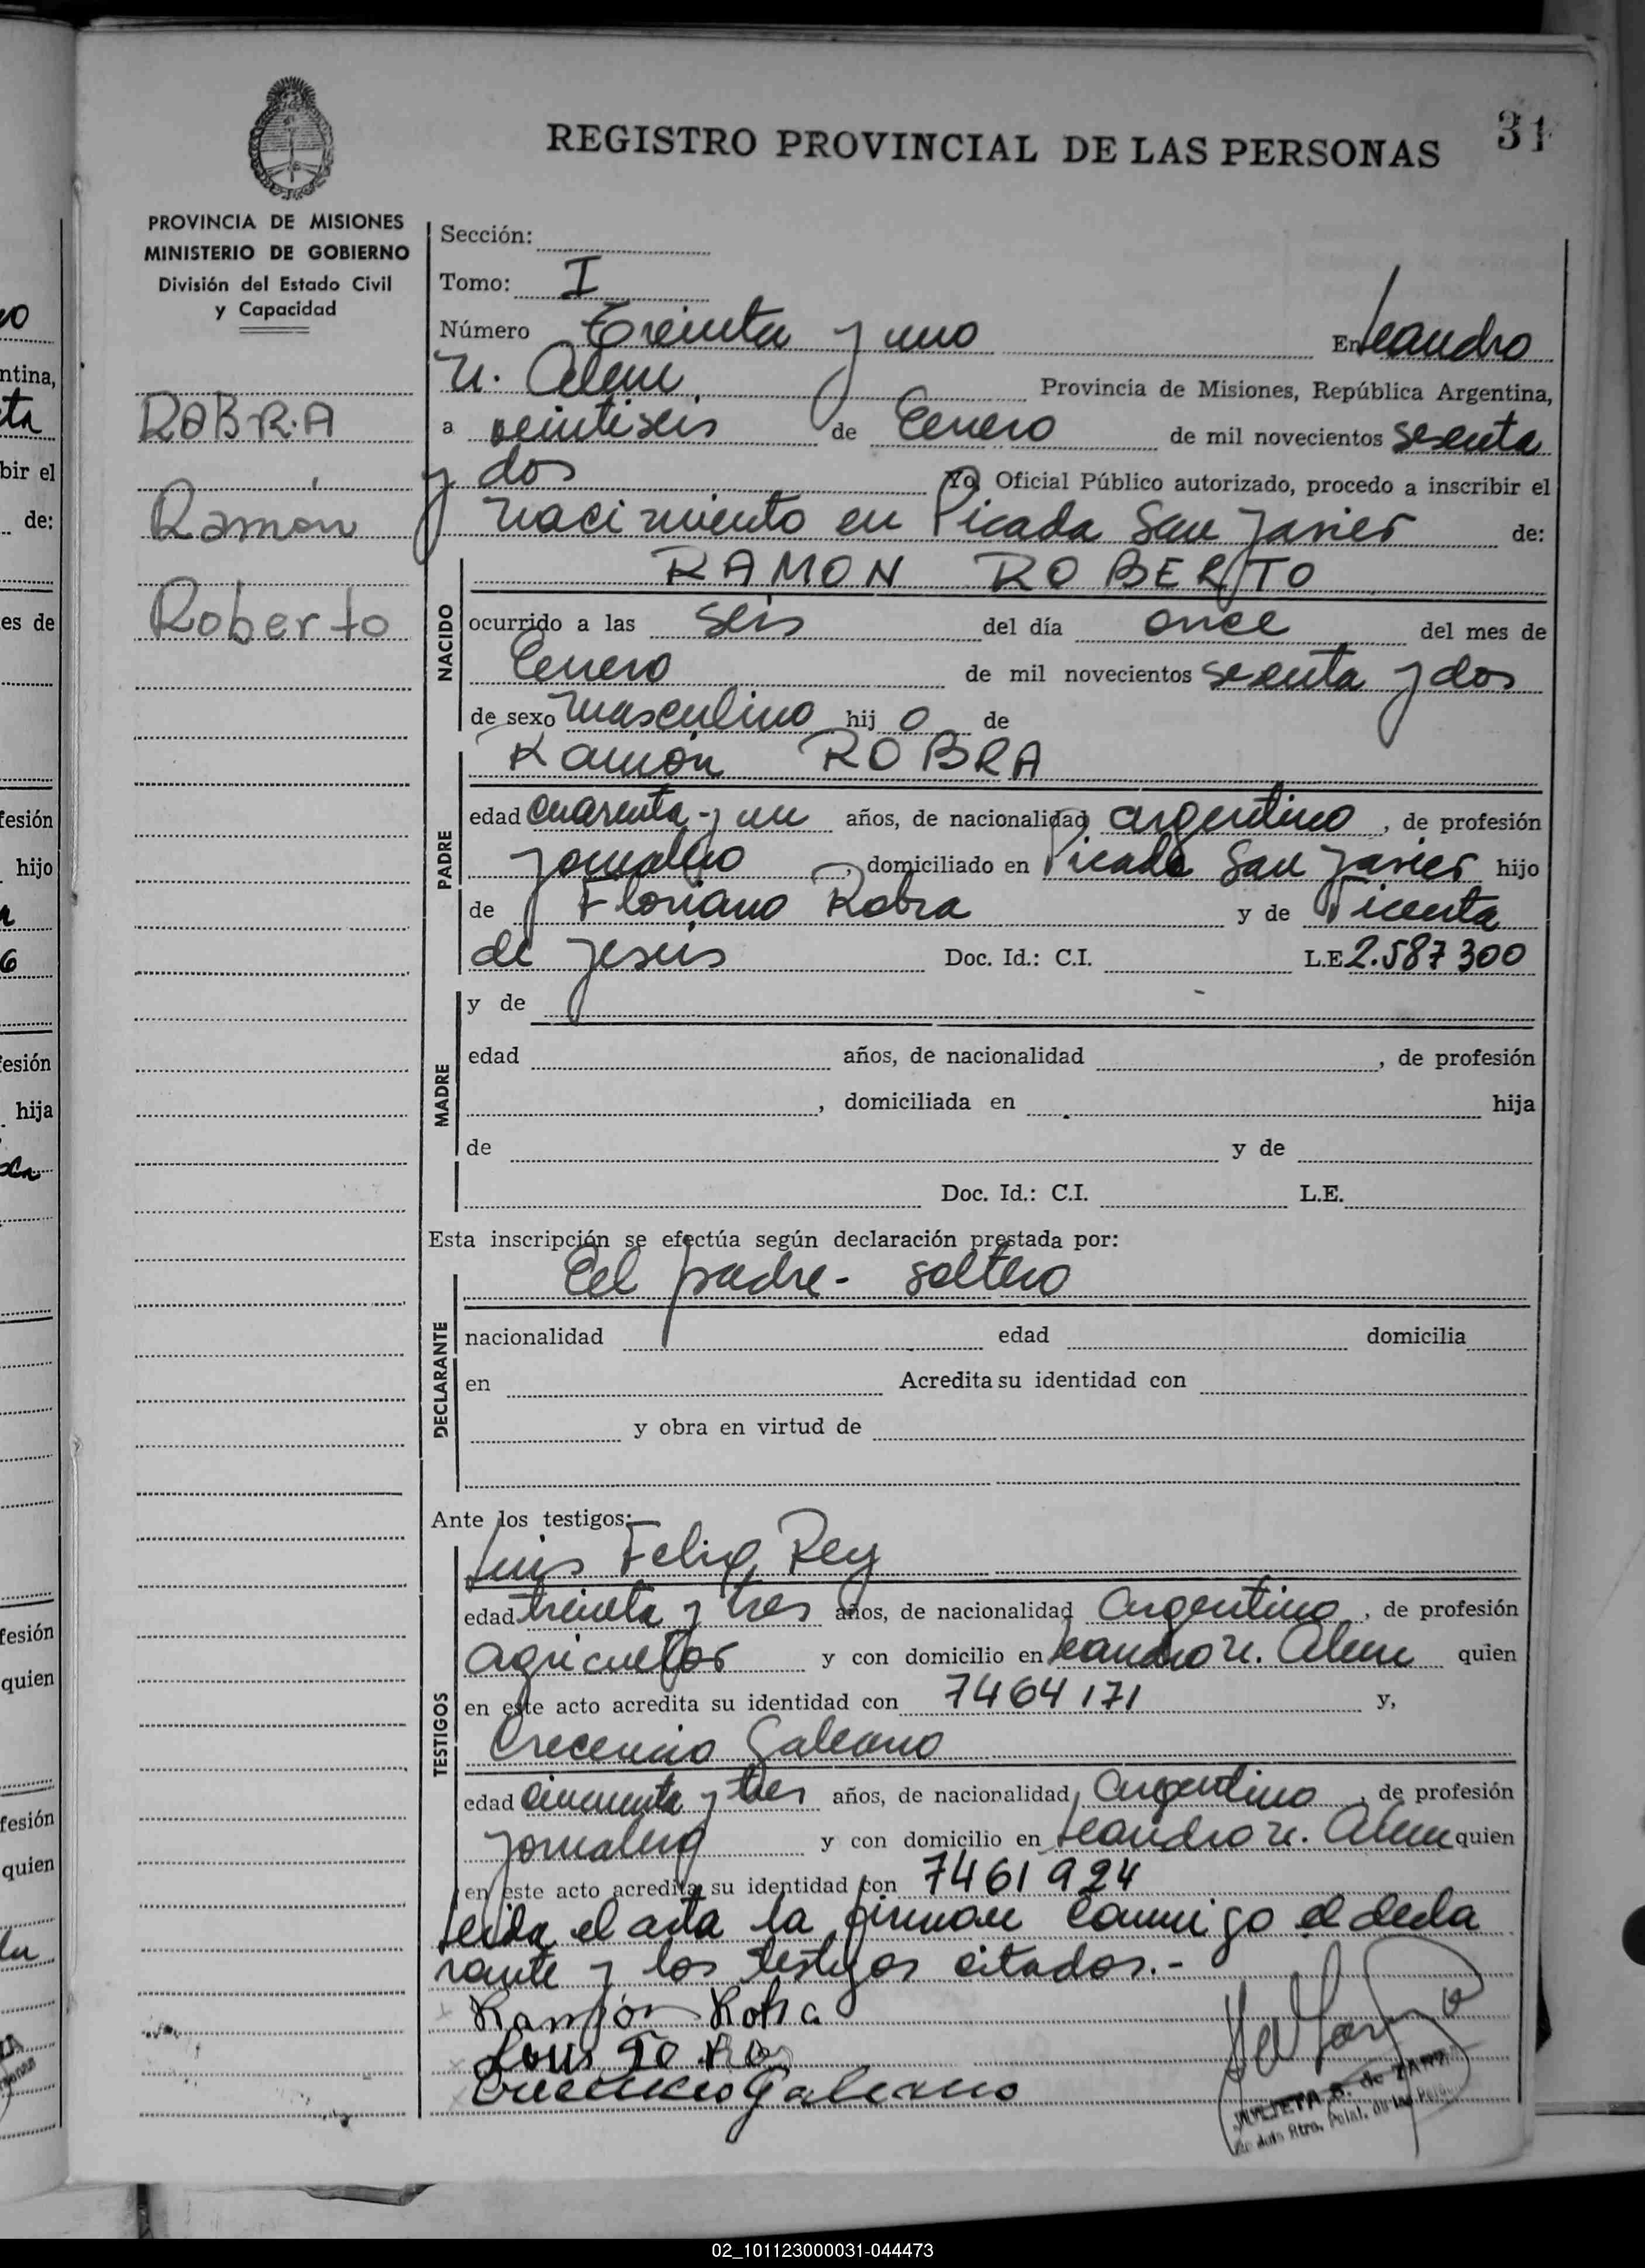 REGISTRO PROVINCIAL DE LAS PERSONAS
31
PROVINCIA DE MISIONES
MINISTERIO DE GOBIERNO
División del Estado Civil
y Capacidad
ROBRA
Ramón
Roberto
Sección:
Tomo: I
Número Treinta y uno En Leandro
N. Alem Provincia de Misiones, República Argentina,
a veintiseis de Enero de mil novecientos sesenta
y dos Yo, Oficial Público autorizado, procedo a inscribir el
nacimiento en Picada San Javier de:
NACIDO
RAMON ROBERTO
ocurrido a las seis del día once del mes de
Enero de mil novecientos sesenta y dos
de sexo masculino hijo de
PADRE
Ramón ROBRA
edad cuarenta y un años, de nacionalidad argentino, de profesión
jornalero, domiciliado en Picada San Javier hijo
de Floriano Robra y de Vicenta
de Jesús Doc. Id.: C.I. L.E 2.587300
MADRE
y de
edad años, de nacionalidad , de profesión
, domiciliada en hija
de y de
Doc. Id.: C.I. L.E.
Esta inscripción se efectúa según declaración prestada por:
DECLARANTE
El padre - soltero
nacionalidad edad domicilia
en Acredita su identidad con
y obra en virtud de
Ante los testigos:
TESTIGOS
Luis Felix Rey
edad treinta y tres años, de nacionalidad argentino, de profesión
agricultor y con domicilio en Leandro N. Alem quien
en este acto acredita su identidad con 7464171 y,
Crecencio Galeano
edad cincuenta y tres años, de nacionalidad Argentino, de profesión
jornalero y con domicilio en Leandro N. Alem quien
en este acto acredita su identidad con 7461924
Leida el acta la firman conmigo el decla
rante y los testigos citados.-
Ramón Robra
Crecencio Galeano
JULIETA de
02_101123000031-044473